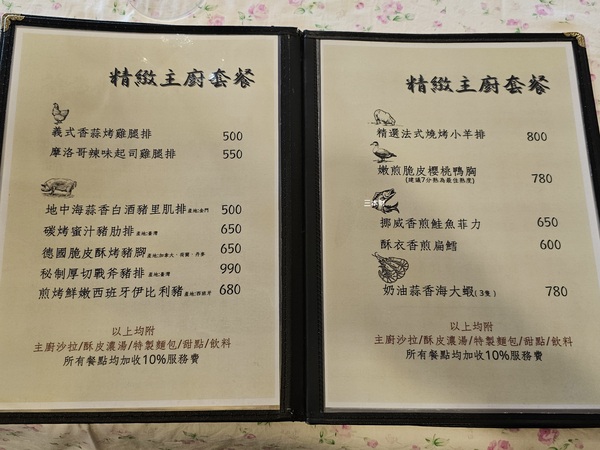 精緻主廚套餐
義式香蒜烤雞腿排 500
摩洛哥辣味起司雞腿排 550
地中海蒜香白酒豬里肌排 產地:金門 500
碳烤蜜汁豬肋排 產地:臺灣 650
德國脆皮酥烤豬腳 產地:加拿大、荷蘭、丹麥 650
秘制厚切戰斧豬排 產地:臺灣 990
煎烤鮮嫩西班牙伊比利豬 產地:西班牙 680
以上均附
主廚沙拉/酥皮濃湯/特製麵包/甜點/飲料
所有餐點均加收10%服務費
精緻主廚套餐
精選法式燒烤小羊排 800
嫩煎脆皮櫻桃鴨胸 780
(建議7分熟為最佳熟度)
挪威香煎鮭魚菲力 650
酥衣香煎扁鱈 600
奶油蒜香海大蝦(3隻) 780
以上均附
主廚沙拉/酥皮濃湯/特製麵包/甜點/飲料
所有餐點均加收10%服務費